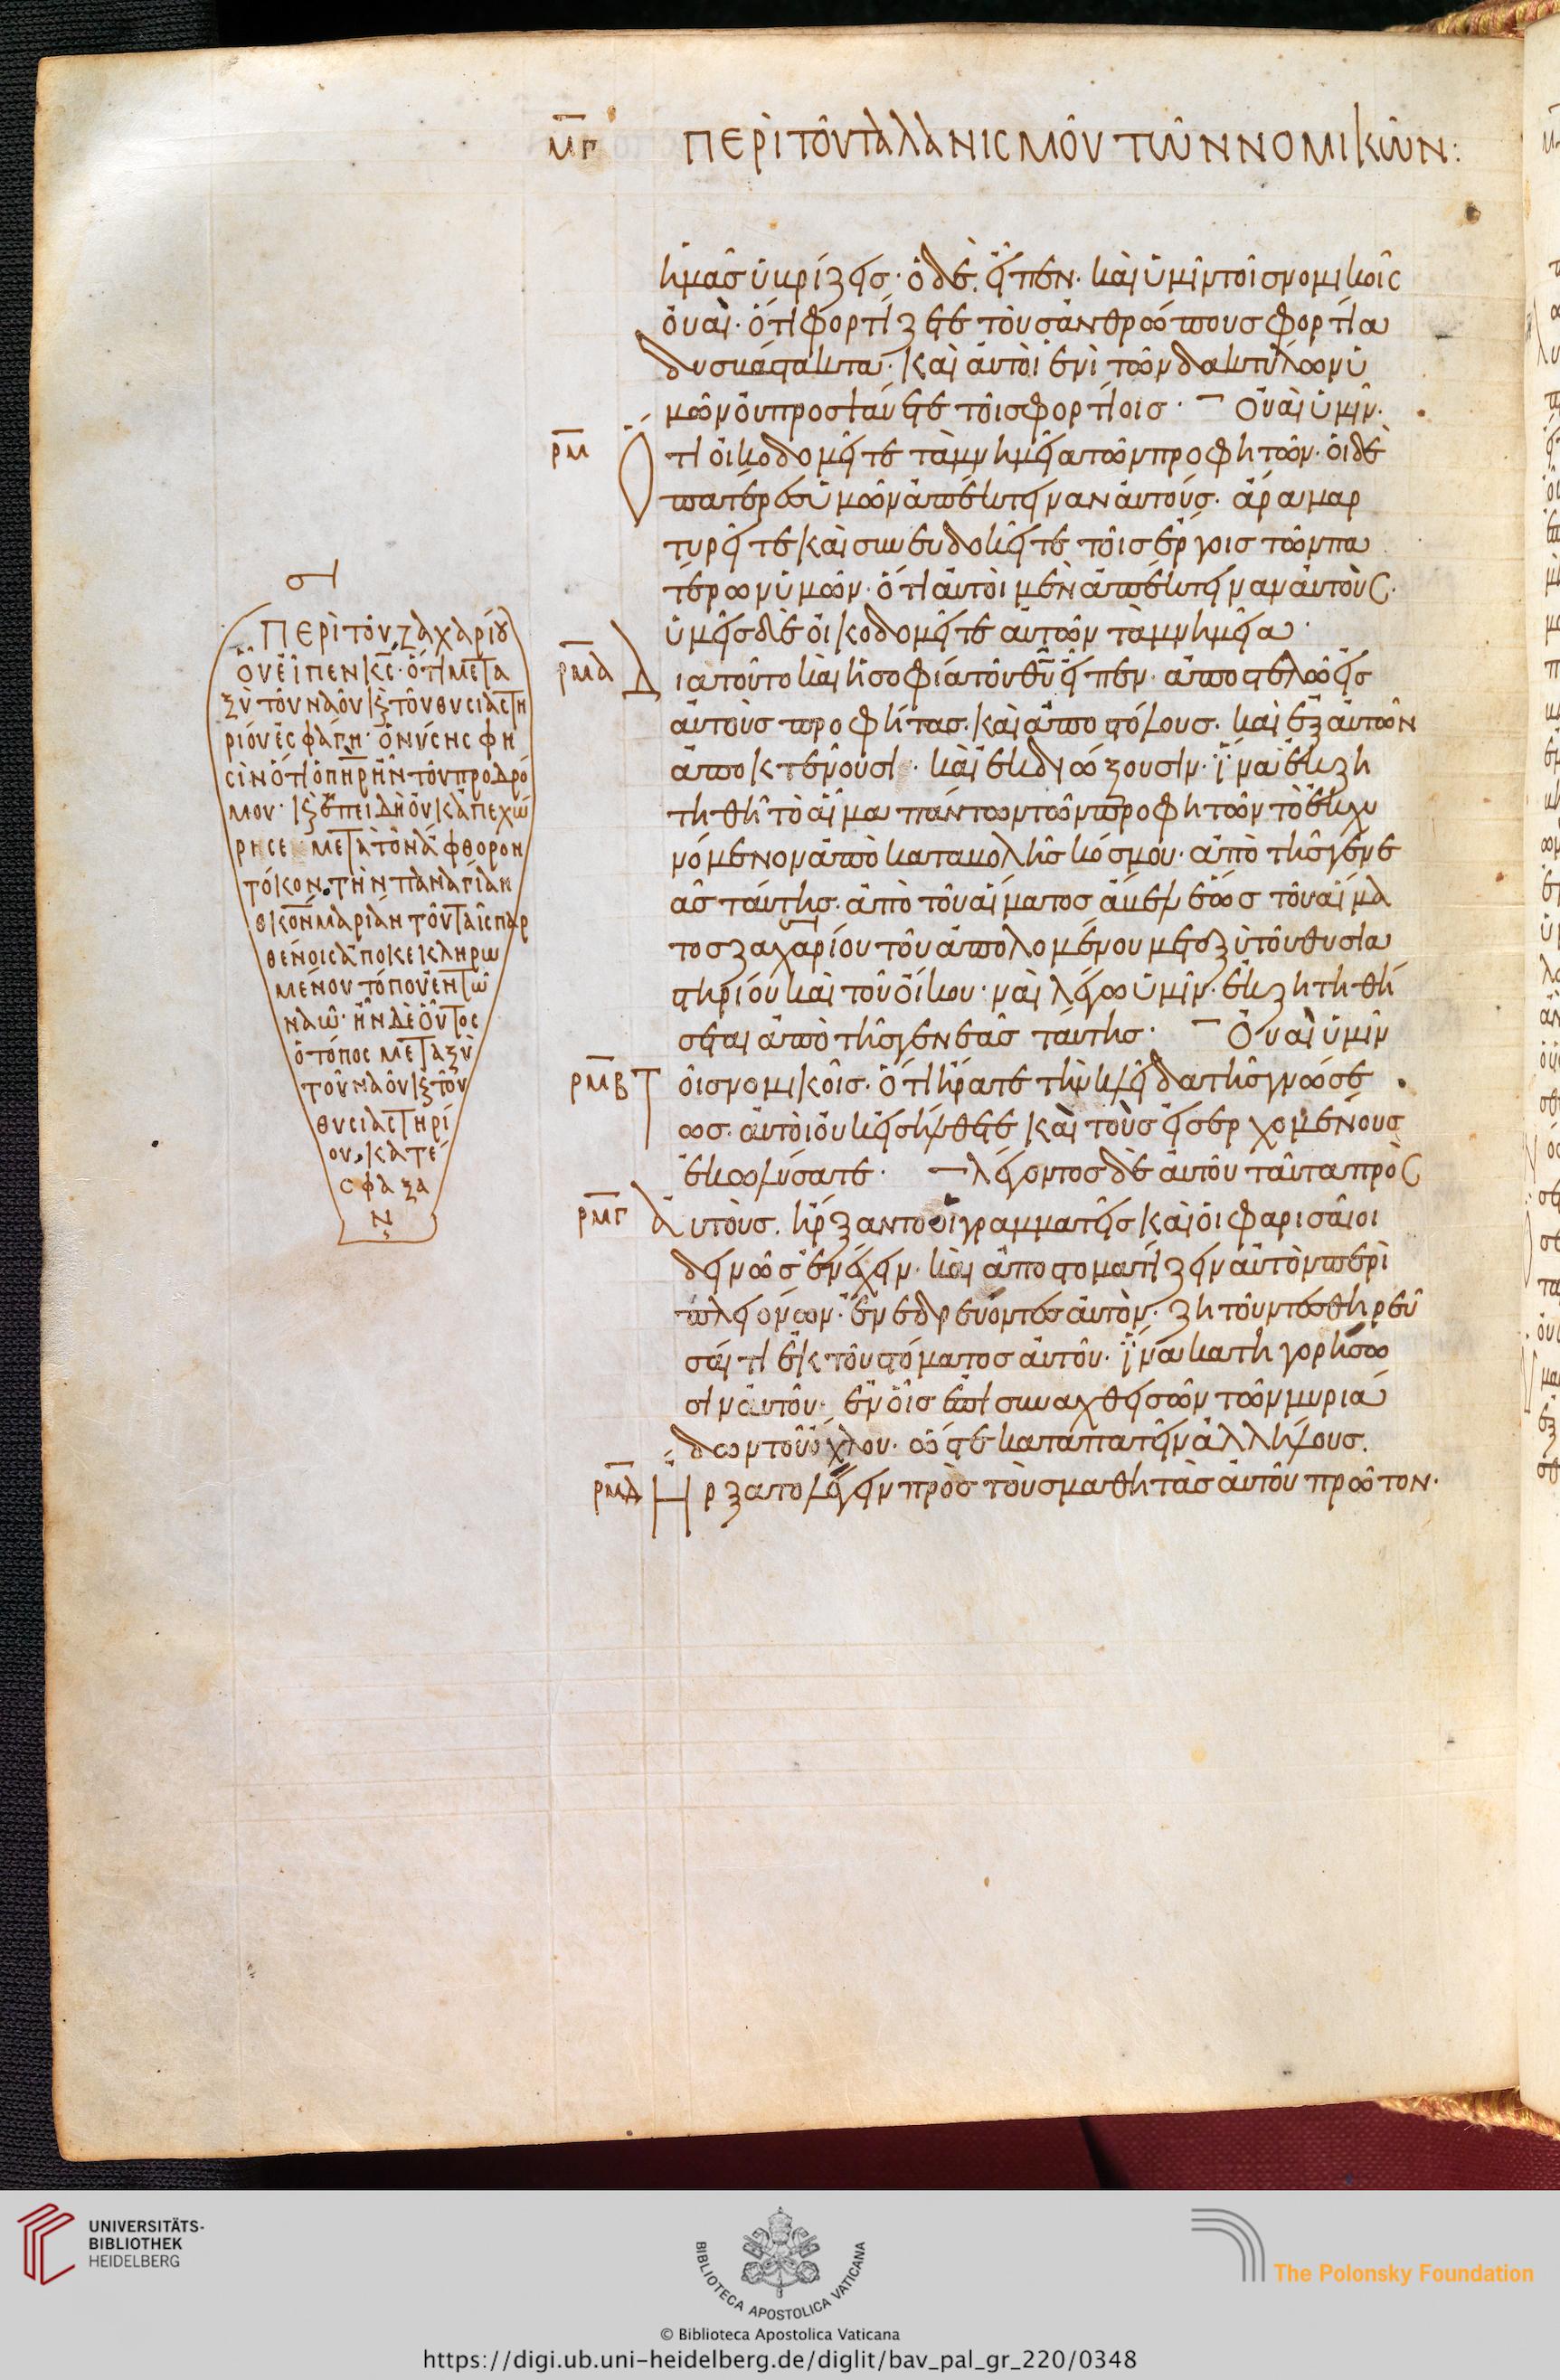 μγ περὶ τοῦ ταλανισμοῦ τῶν νομικῶν:
ἡμᾶς ὑβρίζεις· ὁ δὲ εἶπεν· καὶ ὑμῖν τοῖς νομικοῖς
οὐαὶ· ὅτι φορτίζετε τοὺς ἀνθρώπους φορτία
δυσβάστακτα· καὶ αὐτοὶ ἑνὶ τῶν δακτύλων ὑ
μῶν οὐ προσψαύετε τοῖς φορτίοις· Οὐαὶ ὑμῖν·
ρμ Ὅ
τι οἰκοδομεῖτε τὰ μνημεῖα τῶν προφητῶν· οἱ δὲ
πατέρες ὑμῶν ἀπέκτειναν αὐτούς· ἄρα μαρ
τυρεῖτε καὶ συνευδοκεῖτε τοῖς ἔργοις τῶν πα
τέρων ὑμῶν· ὅτι αὐτοὶ μὲν ἀπέκτειναν αὐτοὺς·
ὑμεῖς δὲ οἰκοδομεῖτε αὐτῶν τὰ μνημεῖα·
ρμα Δ
ιατοῦτο καὶ ἡ σοφία τοῦ θυ εἶπεν· ἀποστελῶ εἰς
αὐτοὺς προφήτας· καὶ ἀποστόλους· καὶ ἐξ αὐτῶν
ἀποκτενοῦσι· καὶ ἐκδιώξουσιν· ἵνα ἐκζη
τηθῆ τὸ αἷμα πάντων τῶν προφητῶν τὸ ἐκχυ
νόμενον ἀπὸ καταβολῆς κόσμου· ἀπὸ τῆς γενε
ᾶς ταύτης· ἀπὸ τοῦ αἵματος ἄβελ ἕως τοῦ αἵμα
τος ζαχαρίου τοῦ ἀπολομένου μεταξὺ τοῦ θυσια
στηρίου καὶ τοῦ οἴκου· ναὶ λέγω ὑμῖν· ἐκζητηθή
σεται ἀπὸ τῆς γενεᾶς ταύτης· Οὐαὶ ὑμῖν
ρμβ τοῖς νομικοῖς· ὅτι ἤρατε τὴν κλεῖδα τῆς γνώσε
ως· αὐτοὶ οὐκ εἰσήλθετε καὶ τοὺς εἰσερχομένους
ἐκωλύσατε· λέγοντος δὲ αὐτοῦ ταῦτα πρὸς
ρμγ αὐτοὺς· ἤρξαντο οἱ γραμματεῖς καὶ οἱ φαρισαῖοι
δεινῶς ἐνέχειν· καὶ ἀποστοματίζειν αὐτὸν περὶ
πλειόνων· ἐνεδρεύοντες αὐτὸν· ζητοῦντες θηρεῦ
σαί τι ἐκ τοῦ στόματος αὐτοῦ· ἵνα κατηγορήσω
σιν αὐτοῦ· ἐν οἷς ἐπισυναχθεισῶν τῶν μυριά
δων τοῦ ὄχλου· ὥστε καταπατεῖν ἀλλήλους·
ρμδ Ἤρξατο λέγειν πρὸς τοὺς μαθητὰς αὐτοῦ πρῶτον·
Περὶ τοῦ ζαχαρίου
οὗ εἶπεν κς· ὅτι μετα
ξὺ τοῦ ναοῦ κ τοῦ θυσιαστη
ρίου ἐσφάγη· ὁ νύσης φη
σὶν ὅτι ὁ πηρ ἦν τοῦ προδρό
μου· κ ἐπειδὴ οὐκ ἀπεχώ
ρησε μετὰ τὸν ἄφθορον
τόκον τὴν παναγίαν
θκον μαρίαν τοῦ ταῖς παρ
θένοις ἀποκεκληρω
μένου τόπου ἐν τῶ
ναῶ· ἦν δὲ οὗτος
ὁ τόπος μεταξὺ
τοῦ ναοῦ κ τοῦ
θυσιαστηρί
ου, κατέ
σφαξα
ν
UNIVERSITÄTS-
BIBLIOTHEK
HEIDELBERG
BIBLIOTECA APOSTOLICA VATICANA
The Polonsky Foundation
© Biblioteca Apostolica Vaticana
https://digi.ub.uni-heidelberg.de/diglit/bav_pal_gr_220/0348